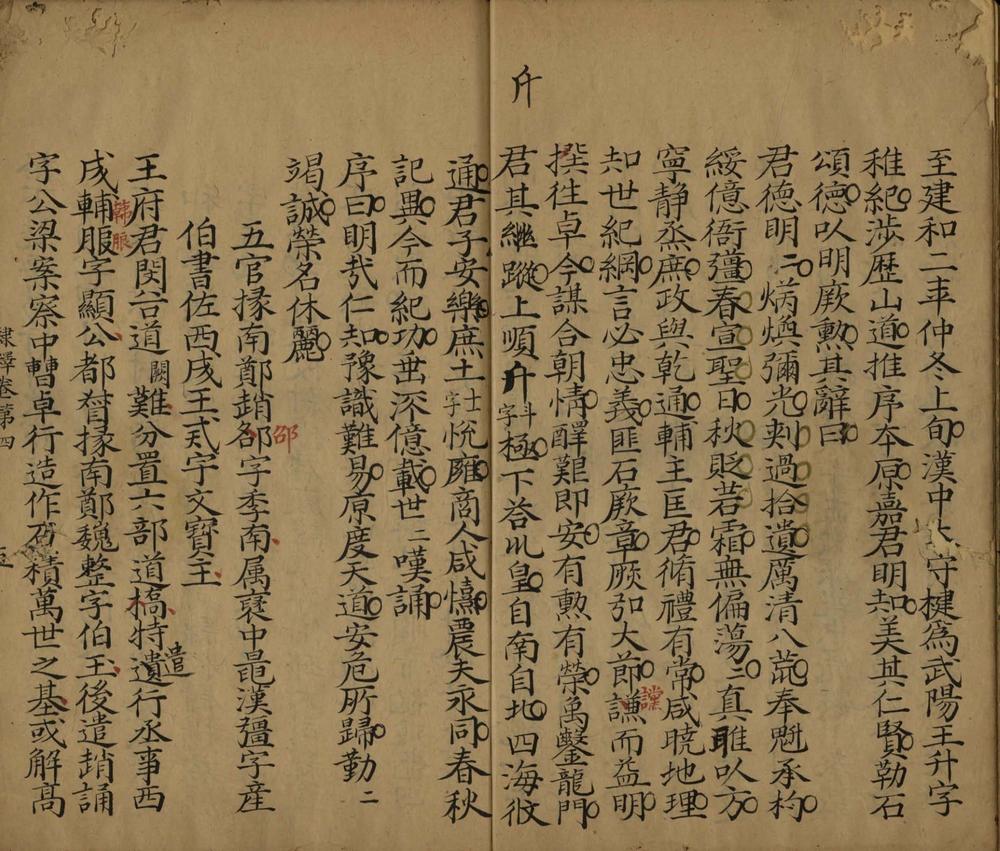 至建和二年仲冬上旬漢中太守楗為武陽王升字
稚紀涉歷山道推序本原嘉君明知美其仁賢勒石
頌德以明厥勲其辭曰
君德明二炳煥彌光刺過拾遺厲清八荒奉魁承杓
綏億衙彊春宣聖日秋貶若霜無偏蕩二真雅以方
寧静烝庶政與乾通輔主匡君循禮有常咸曉地理
知世紀綱言必忠義匪石厥章厥弘大節讜而益明
揆往卓今謀合朝情醳艱即安有勲有榮禹鑿龍門
君其繼蹤上順斗字極下荅巛皇自南自北四海攸
斗
通君子安樂庶土士字悅雍商人咸憘農夫永同春秋
記異今而紀功垂流億載世二嘆誦
序曰明哉仁知豫識難易原度天道安危所歸勤二
竭誠榮名休麗
五官掾南鄭趙邵字季南属襃中鼂漢彊字産
邵
伯書佐西戌王戒字文寳主
王府君閔谷道闕難分置六部道橋特遣行丞事西
遣
戌韓服字顯公都督掾南鄭魏整字伯王後遣趙誦
韓服
字公梁案察中曹卓行造作石積萬世之基或解高
隸釋卷第四
五
升